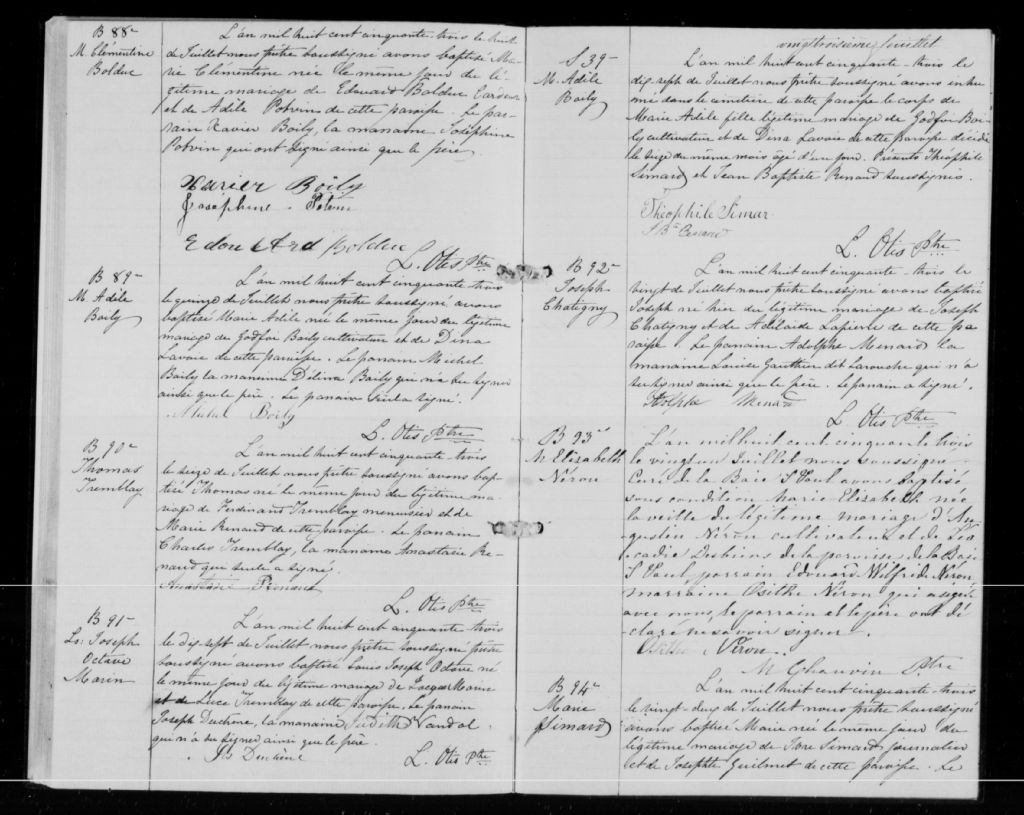 B 88
M. Clémentine
Bolduc
L'an mil huit cent cinquante-trois le huit
de Juillet nous prêtre soussigné avons baptisé Ma-
rie Clémentine née le même jour du lé-
gitime mariage de Edouard Bolduc
et de Adèle Potvin de cette paroisse. Le par-
rain Xavier Boily, la marraine Joséphine
Potvin qui ont signé ainsi que le père.
Xavier Boily
Joséphine Potvin
Edouard Bolduc
L. Otis Ptre
B 89
M. Adèle
Boily
L'an mil huit cent cinquante-trois
le quinze de Juillet nous prêtre soussigné avons
baptisé Marie Adèle née le même jour du légitime
mariage de Godfroi Boily cultivateur et de Dina
Lavoie de cette paroisse. Le parrain Michel
Boily la marraine Délina Boily qui n'a su signer
ainsi que le père. Le parrain seul a signé.
Michel Boily
L. Otis Ptre
B 90
Thomas
Tremblay
L'an mil huit cent cinquante-trois
le seize de Juillet nous prêtre soussigné avons bap-
tisé Thomas né le même jour du légitime ma-
riage de Ferdinand Tremblay menuisier et de
Marie Renaud de cette paroisse. Le parrain
Charles Tremblay, la marraine Anastasie Re-
naud qui seule a signé.
Anastasie Renaud
L. Otis Ptre
B 91
Ls: Joseph
Octave
Morin
L'an mil huit cent cinquante-trois
le dix-sept de Juillet nous prêtre soussigné prêtre
soussigné avons baptisé Louis Joseph Octave né
le même jour du légitime mariage de Jacques Morin
et de Luce Tremblay de cette paroisse. Le parrain
Joseph Duchêne, la marraine Judith Vandal
qui n'a su signer ainsi que le père.
Js Duchêne
L. Otis Ptre
vingttroisième feuillet
S 39
M. Adèle
Boily
L'an mil huit cent cinquante-trois le
dix-sept de Juillet nous prêtre soussigné avons inhu-
mé dans le cimetière de cette paroisse le corps de
Marie Adèle fille légitime mariage de Godfroi Boi-
ly cultivateur et de Dina Lavoie de cette paroisse décédée
le seize du même mois âgé d'un jour. Présents Théophile
Simard et Jean Baptiste Renaud soussignés.
Théophile Simar
J Bte Renaud
L. Otis Ptre
B 92
Joseph
Chatigny
L'an mil huit cent cinquante-trois le
vingt de Juillet nous prêtre soussigné avons baptisé
Joseph né hier du légitime mariage de Joseph
Chatigny et de Adélaïde Lapierre de cette pa-
roisse. Le parrain Adolphe Menard la
marraine Louise Gauthier dit Larouche qui n'a
su signer ainsi que le père. Le parrain a signé.
Adolphe Menard
L. Otis Ptre
B 93
M Elizabeth
Néron
L'an mil huit cent cinquante trois
le vingt un Juillet nous soussigné
Curé de la Baie St Paul avons baptisé
sous condition Marie Elizabeth née
la veille du légitime mariage d'Au-
gustin Néron cultivateur et de Léo-
cadie Desbiens de la paroisse de la Baie
St Paul, parrain Edouard Wilfride Néron
marraine Osithe Néron qui a signé
avec nous, le parrain et le père ont dé-
claré ne savoir signer.
Osithe Néron.
M Chauvin Ptre
B 94
Marie
Simard
L'an mil huit cent cinquante-trois
le vingt-deux de Juillet nous prêtre soussigné
avons baptisé Marie née le même jour du
légitime mariage de Simard journalier
et de Josephte Guilmet de cette paroisse. Le